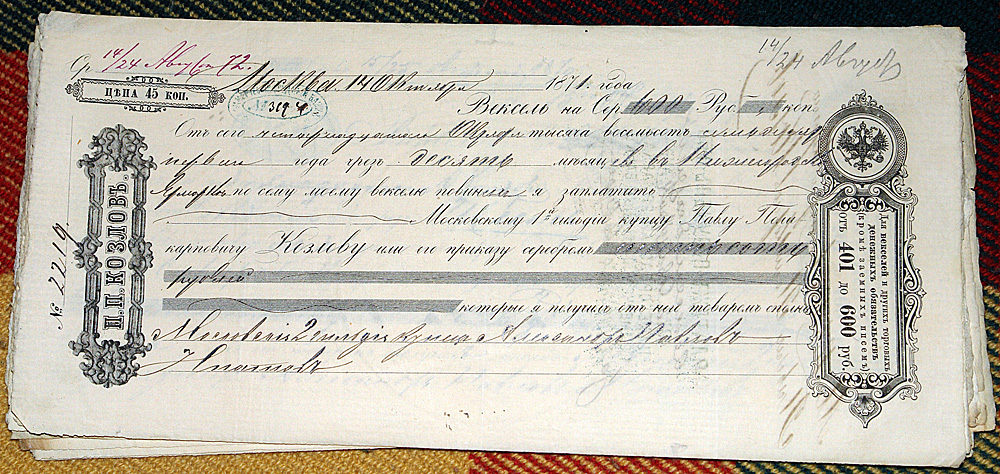 Ср. 14/24 Августа 72.
14/24 Август
Москва 14 Октября 1871. года
ЦѢНА 45 КОП.
№ 319
Вексель на Сер. 600 Руб. коп.
Отъ сего четырнадцатаго Октября тысяча восемьсотъ семьдесятъ
первага года чрезъ десять месяцевъ въ Нижегородской
Ярмаркѣ по сему моему векселю повиненъ я заплатить
Московскому 1й гильдіи купцу Павлу Поли-
карповичу Козлову или его приказу серебромъ шестьсотъ
рублей
которые я получилъ отъ него товаромъ сполна
Московскій 2 гильдіи купецъ Александръ Павловъ
Н. П. КОЗЛОВЪ.
№ 2219
Для векселей и другихъ торговыхъ
денежныхъ обязательствъ
(кромѣ заемныхъ писемъ)
отъ 401 до 600 руб.